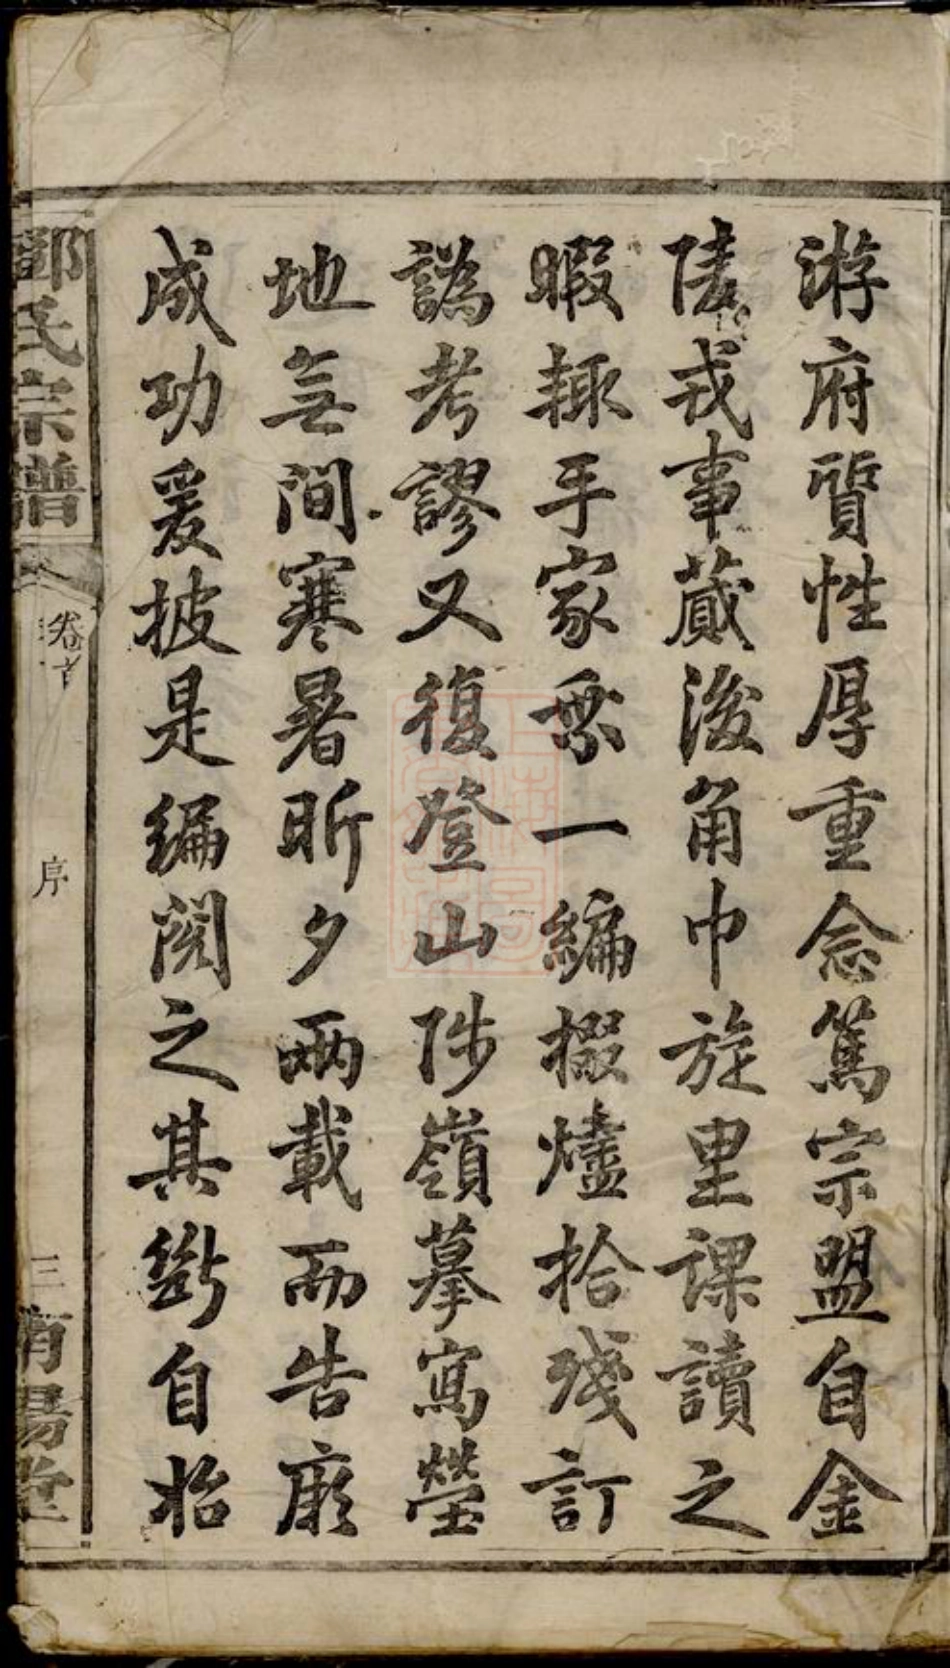 游府質性厚重念篤宗盟自金
陵戎事蕆後角巾旋里課讀之
暇輙手家乗一編掇燼拾殘訂
譌考謬又復登山陟嶺摹寫塋
地無間寒暑昕夕兩載而告厥
成功爰披是編閱之其斷自始
鄧氏宗譜
卷首
序
三
南陽堂